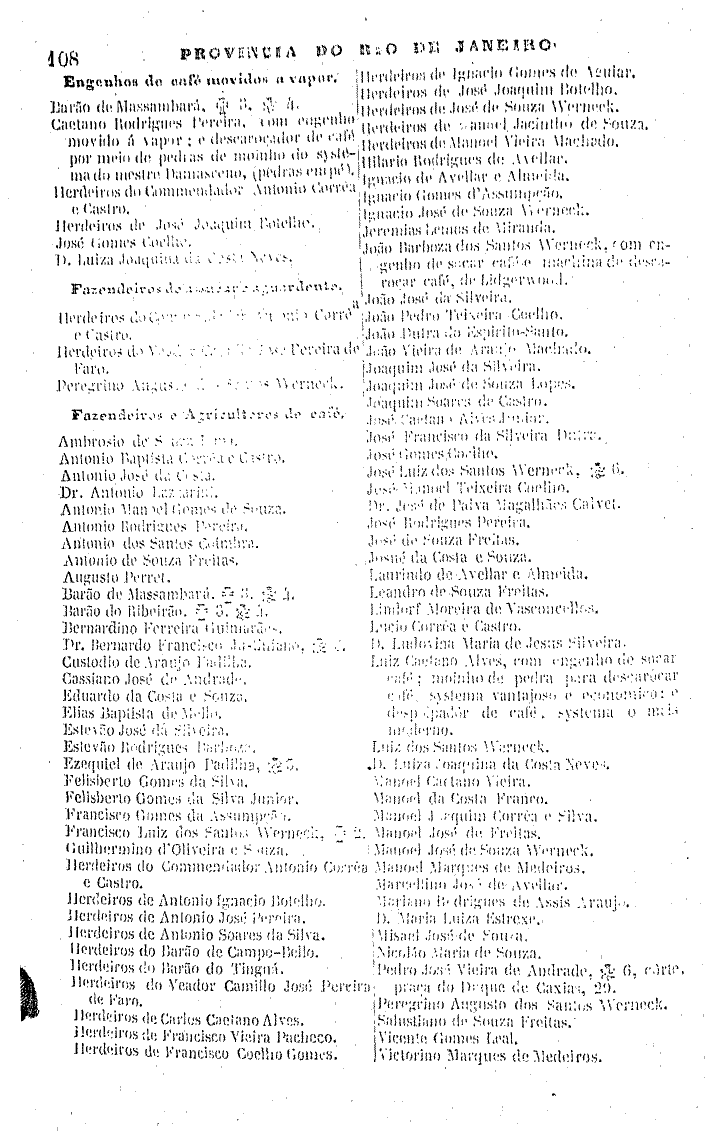 108 PROVINCIA DO RIO DE JANEIRO.
Engenhos de café movidos a vapor.
Barão de Massambará, 3, 4.
Caetano Rodrigues Pereira, com engenho
movido á vapor; e descaroçador de café
por meio de pedras de moinho do systé-
ma do mestre Damasceno, (pedras em pé).
Herdeiros do Commendador Antonio Corrêa
e Castro.
Herdeiros de José Joaquim Botelho.
José Gomes Coelho.
D. Luiza Joaquina da Costa Neves.
Fazendeiros de assucar e aguardente.
Herdeiros do Antonio Corrêa
e Castro.
Herdeiros do José Pereira de
Faro.
Peregrino Augusto dos Santos Werneck.
Fazendeiros e Agricultores de café.
Ambrosio de Souza
Antonio Baptista Corrêa e Castro.
Antonio José da Costa.
Dr. Antonio Lazzarini.
Antonio Manoel Gomes de Souza.
Antonio Rodrigues Pereira.
Antonio dos Santos Coimbra.
Antonio de Souza Freitas.
Augusto Perret.
Barão de Massambará. 3. 4.
Barão do Ribeirão. 3. 4.
Bernardino Ferreira Guimarães.
Dr. Bernardo Francisco
Custodio de Araujo Padilha.
Cassiano José de Andrade.
Eduardo da Costa e Souza.
Elias Baptista de Mello.
Estevão José da Silveira.
Estevão Rodrigues Barboza.
Ezequiel de Araujo Padilha, 5.
Felisberto Gomes da Silva.
Felisberto Gomes da Silva Junior.
Francisco Gomes da Assumpção.
Francisco Luiz dos Santos Werneck, 2.
Guilhermino d'Oliveira e Souza.
Herdeiros do Commendador Antonio Corrêa
e Castro.
Herdeiros de Antonio Ignacio Botelho.
Herdeiros de Antonio José Pereira.
Herdeiros de Antonio Soares da Silva.
Herdeiros do Barão de Campo-Bello.
Herdeiros do Barão do Tinguá.
Herdeiros do Veador Camillo José Pereira
de Faro.
Herdeiros de Carlos Caetano Alves.
Herdeiros de Francisco Vieira Pacheco.
Herdeiros de Francisco Coelho Gomes.
Herdeiros de Ignacio Gomes de Aguiar.
Herdeiros de José Joaquim Botelho.
Herdeiros de José de Souza Werneck.
Herdeiros de Manoel Jacintho de Souza.
Herdeiros de Manoel Vieira Machado.
Hilario Rodrigues de Avellar.
Ignacio de Avellar e Almeida.
Ignacio Gomes d'Assumpção.
Ignacio José de Souza Werneck.
Jeremias Lemos de Miranda.
João Barboza dos Santos Werneck, com en-
genho de socar café e machina de desca-
roçar café, de Lidgerwood.
João José da Silveira.
João Pedro Teixeira Coelho.
João Dutra do Espirito-Santo.
João Vieira de Araujo Machado.
Joaquim José da Silveira.
Joaquim José de Souza Lopes.
Joaquim Soares de Castro.
José Caetano Alves Junior.
José Francisco da Silveira Dutra.
José Gomes Coelho.
José Luiz dos Santos Werneck, 6.
José Manoel Teixeira Coelho.
Dr. José de Paiva Magalhães Calvet.
José Rodrigues Pereira.
José de Souza Freitas.
Josué da Costa e Souza.
Laurindo de Avellar e Almeida.
Leandro de Souza Freitas.
Lindorf Moreira de Vasconcellos.
Lucio Corrêa e Castro.
D. Ludovina Maria de Jesus Silveira.
Luiz Caetano Alves, com engenho de socar
café; moinho de pedra para descaroçar
café, systema vantajoso e economico; e
despolpador de café, systema o mais
moderno.
Luiz dos Santos Werneck.
D. Luiza Joaquina da Costa Neves.
Manoel Caetano Vieira.
Manoel da Costa Franco.
Manoel Joaquim Corrêa e Silva.
Manoel José de Freitas.
Manoel José de Souza Werneck.
Manoel Marques de Medeiros.
Marcellino José de Avellar.
Mariano Rodrigues de Assis Araujo.
D. Maria Luiza Estrexe.
Misael José de Souza.
Nicoláo Maria de Souza.
Pedro José Vieira de Andrade, 6, côrte,
praça do Duque de Caxias, 29.
Peregrino Augusto dos Santos Werneck.
Salustiano de Souza Freitas.
Vicente Gomes Leal.
Victorino Marques de Medeiros.